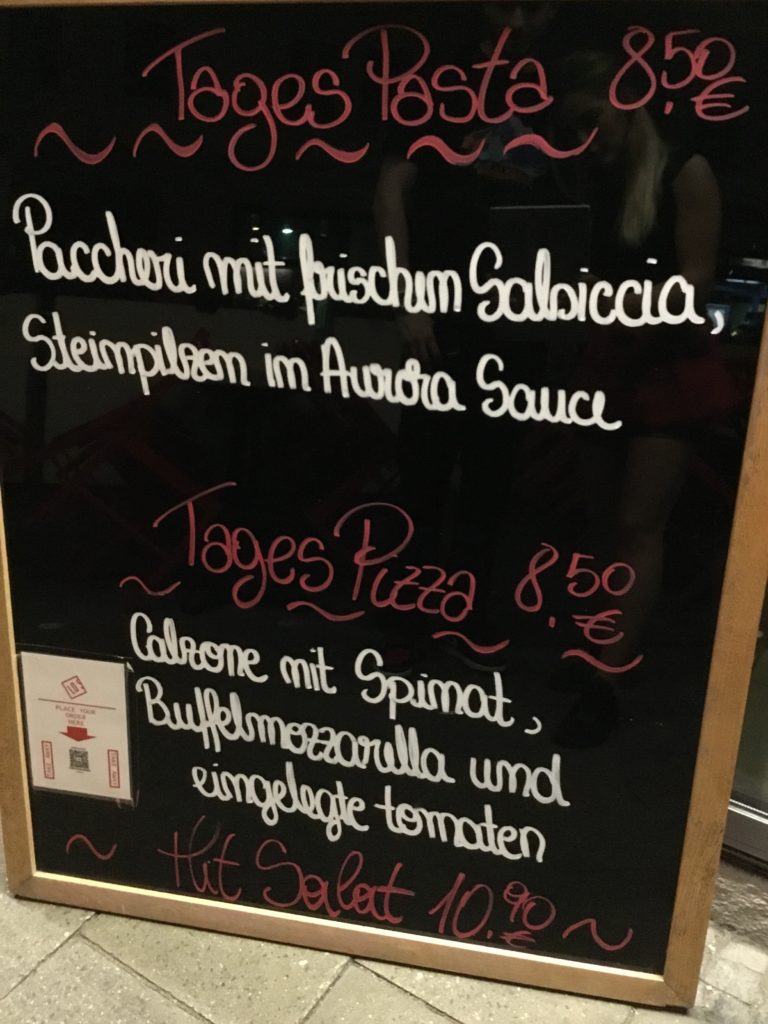 Tages Pasta 8.50 €
Paccheri mit frischen Salsiccia,
Steinpilzen im Aurora Sauce
Tages Pizza 8.50 €
Calzone mit Spinat,
Buffelmozzarella und
eingelegte tomaten
Hit Salat 10.90 €
PLACE YOUR
ORDER
HERE